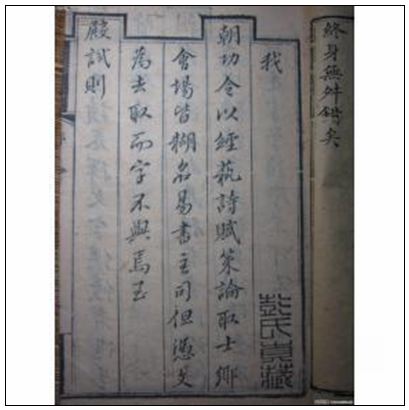 終身無舛錯矣
我
朝功令以經藝詩賦策論取士鄉
會場皆糊名易書主司但憑文
為去取而字不與焉至
殿試則
彭氏真藏